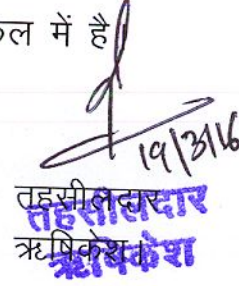 में है
19/3/16
तहसीलदार
तहसीलदार
ऋषिकेश।
ऋषिकेश